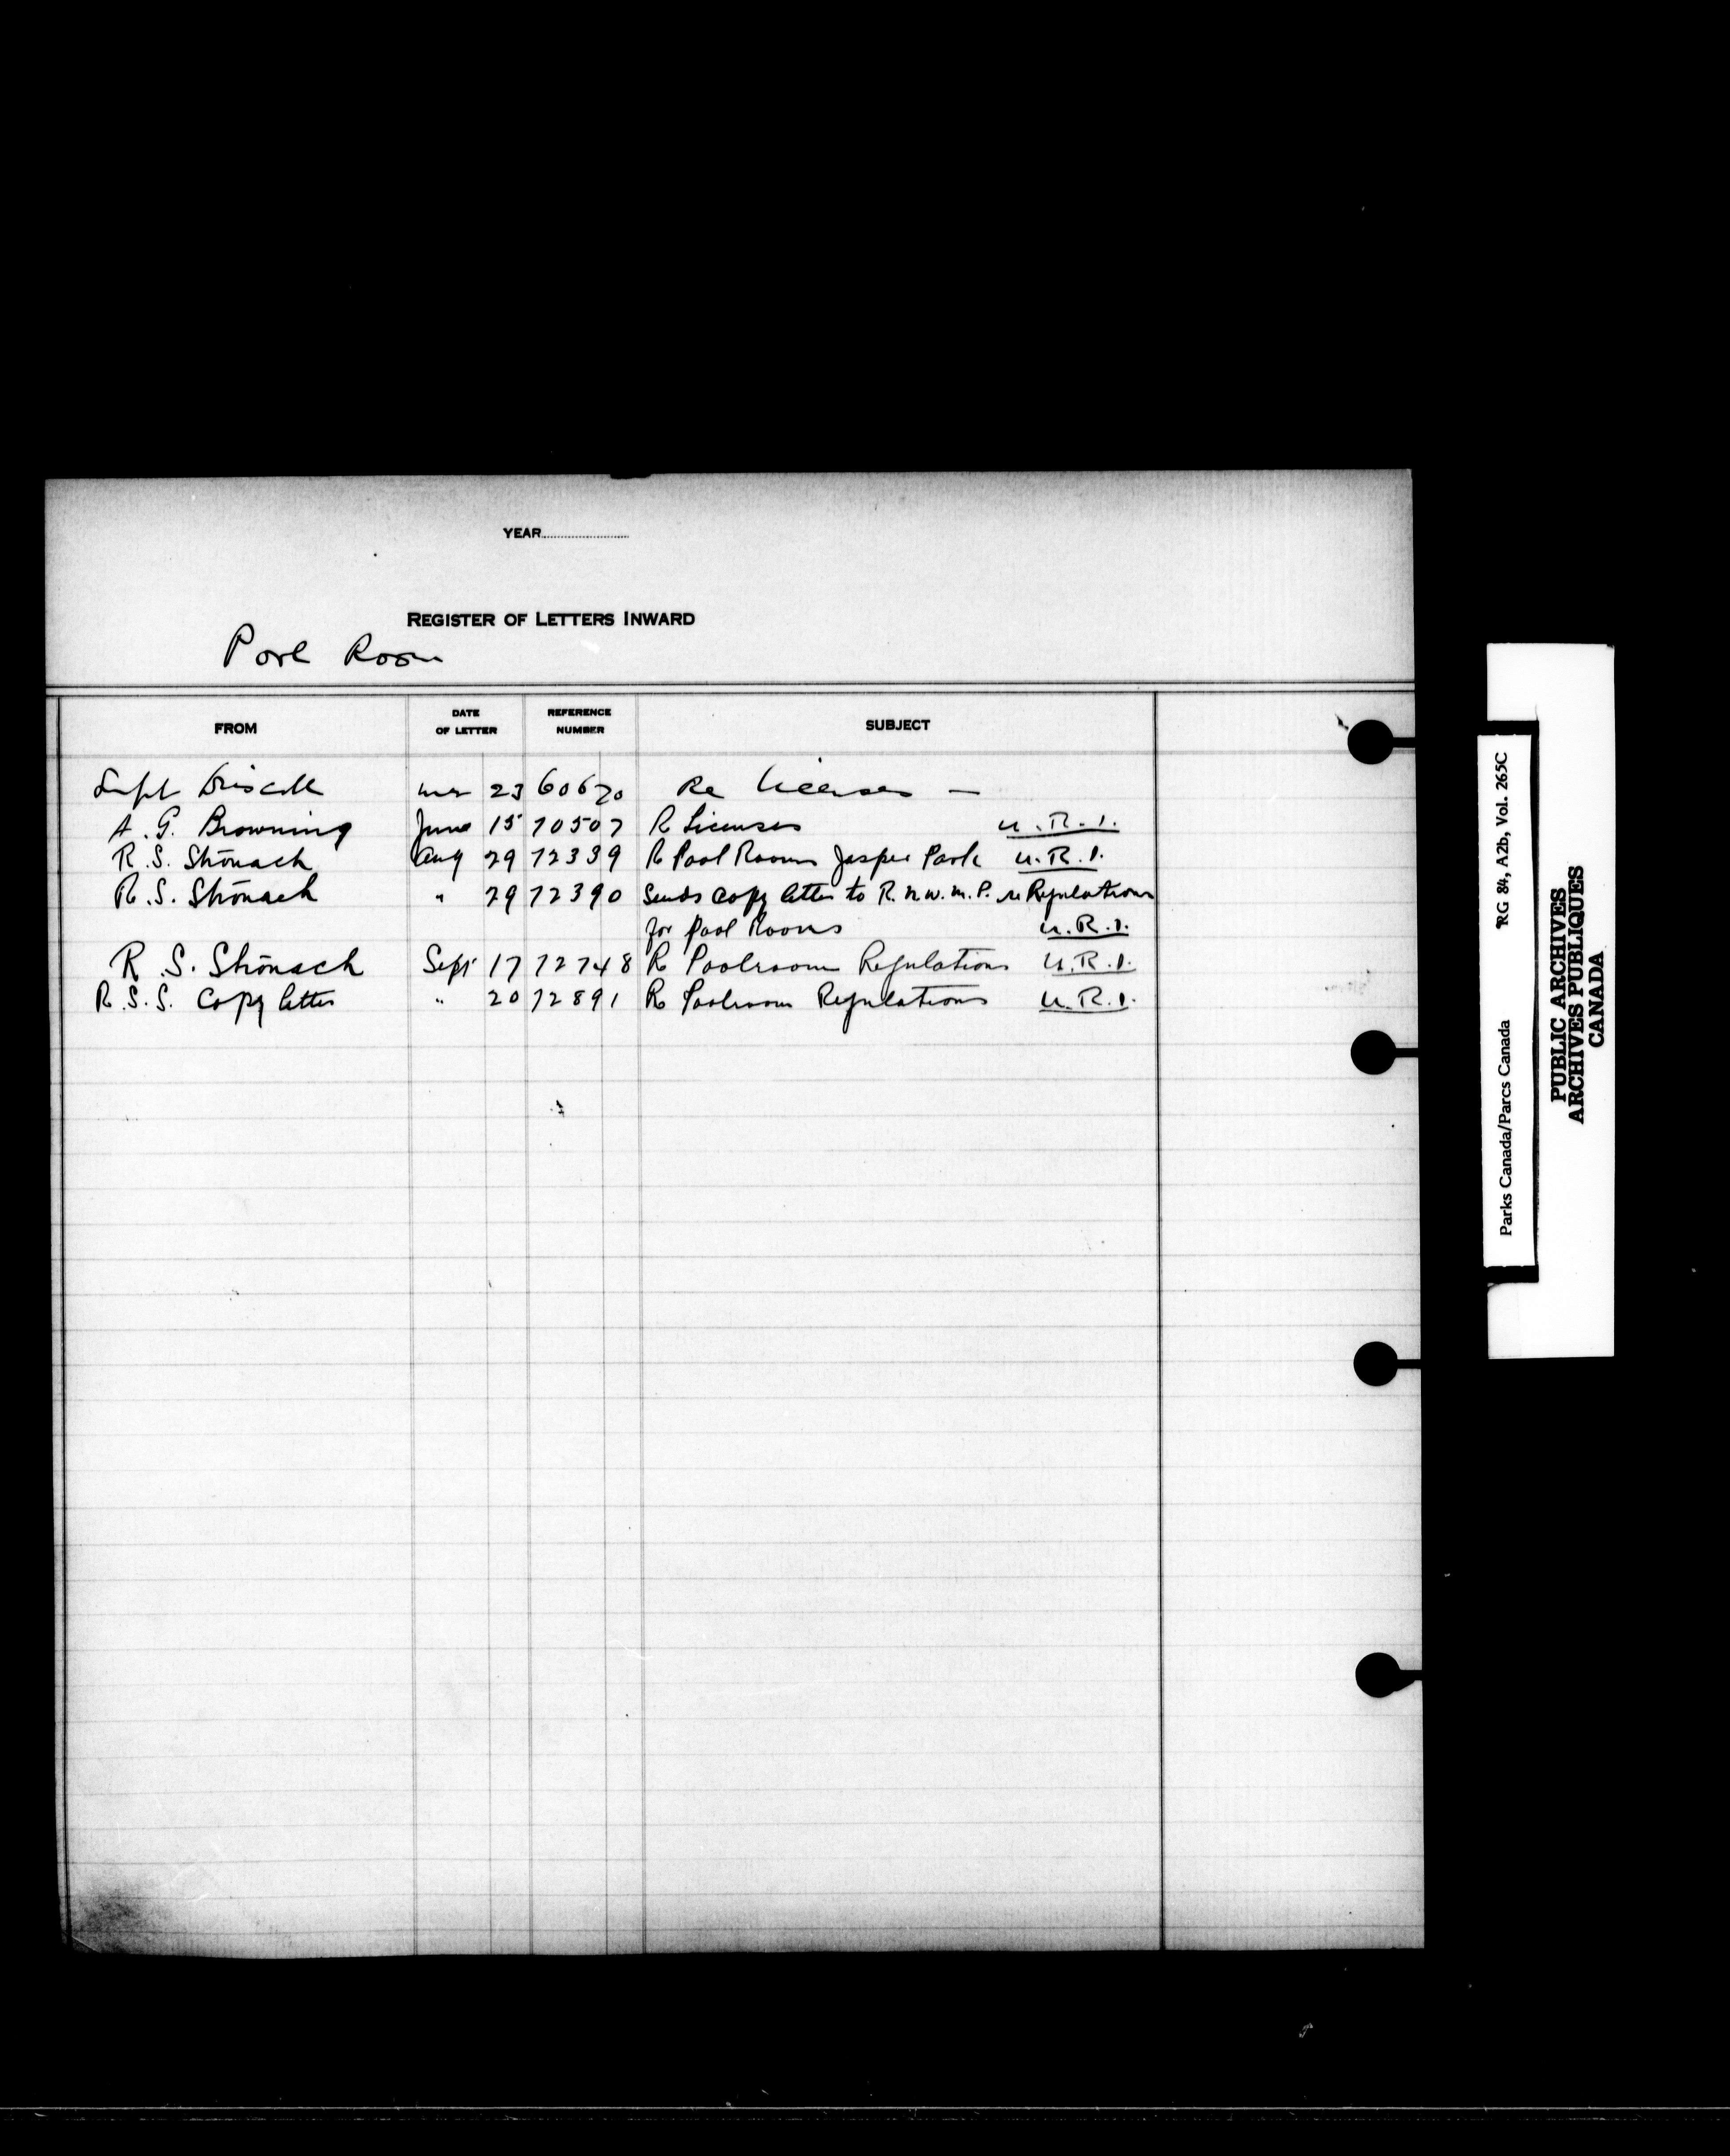 YEAR
REGISTER OF LETTERS INWARD
Pool Room
FROM DATE OF LETTER REFERENCE NUMBER SUBJECT
Supt Driscoll Mar 23 60670 Re licenses —
A. G. Browning June 15 70507 R Licenses U.R.I.
R. S. Stronach Aug 29 72339 R Pool Rooms Jasper Park U.R.I.
R. S. Stronach " 29 72390 Sends copy letter to R.N.W.M.P. re Regulations
for Pool Rooms U.R.I.
R. S. Stronach Sept 17 72748 R Poolroom Regulations U.R.I.
R.S.S. copy letter " 20 72891 R Poolroom Regulations U.R.I.
Parks Canada/Parcs Canada RG 84, A2b, Vol. 265C
PUBLIC ARCHIVES
ARCHIVES PUBLIQUES
CANADA